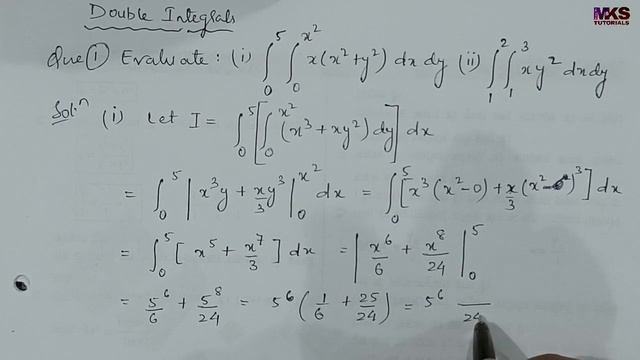 MKS
TUTORIALS
Double Integrals
Que ① Evaluate : (i) ∫₀⁵ ∫₀^{x²} x(x²+y²) dx dy (ii) ∫₁² ∫₁³ xy² dx dy
Solⁿ (i) Let I = ∫₀⁵ [ ∫₀^{x²} (x³ + xy²) dy ] dx
= ∫₀⁵ | x³y + xy³/3 |₀^{x²} dx = ∫₀⁵ [ x³(x²-0) + x/3 (x²-0)³ ] dx
= ∫₀⁵ [ x⁵ + x⁷/3 ] dx = | x⁶/6 + x⁸/24 |₀⁵
= 5⁶/6 + 5⁸/24 = 5⁶ ( 1/6 + 25/24 ) = 5⁶ —/24